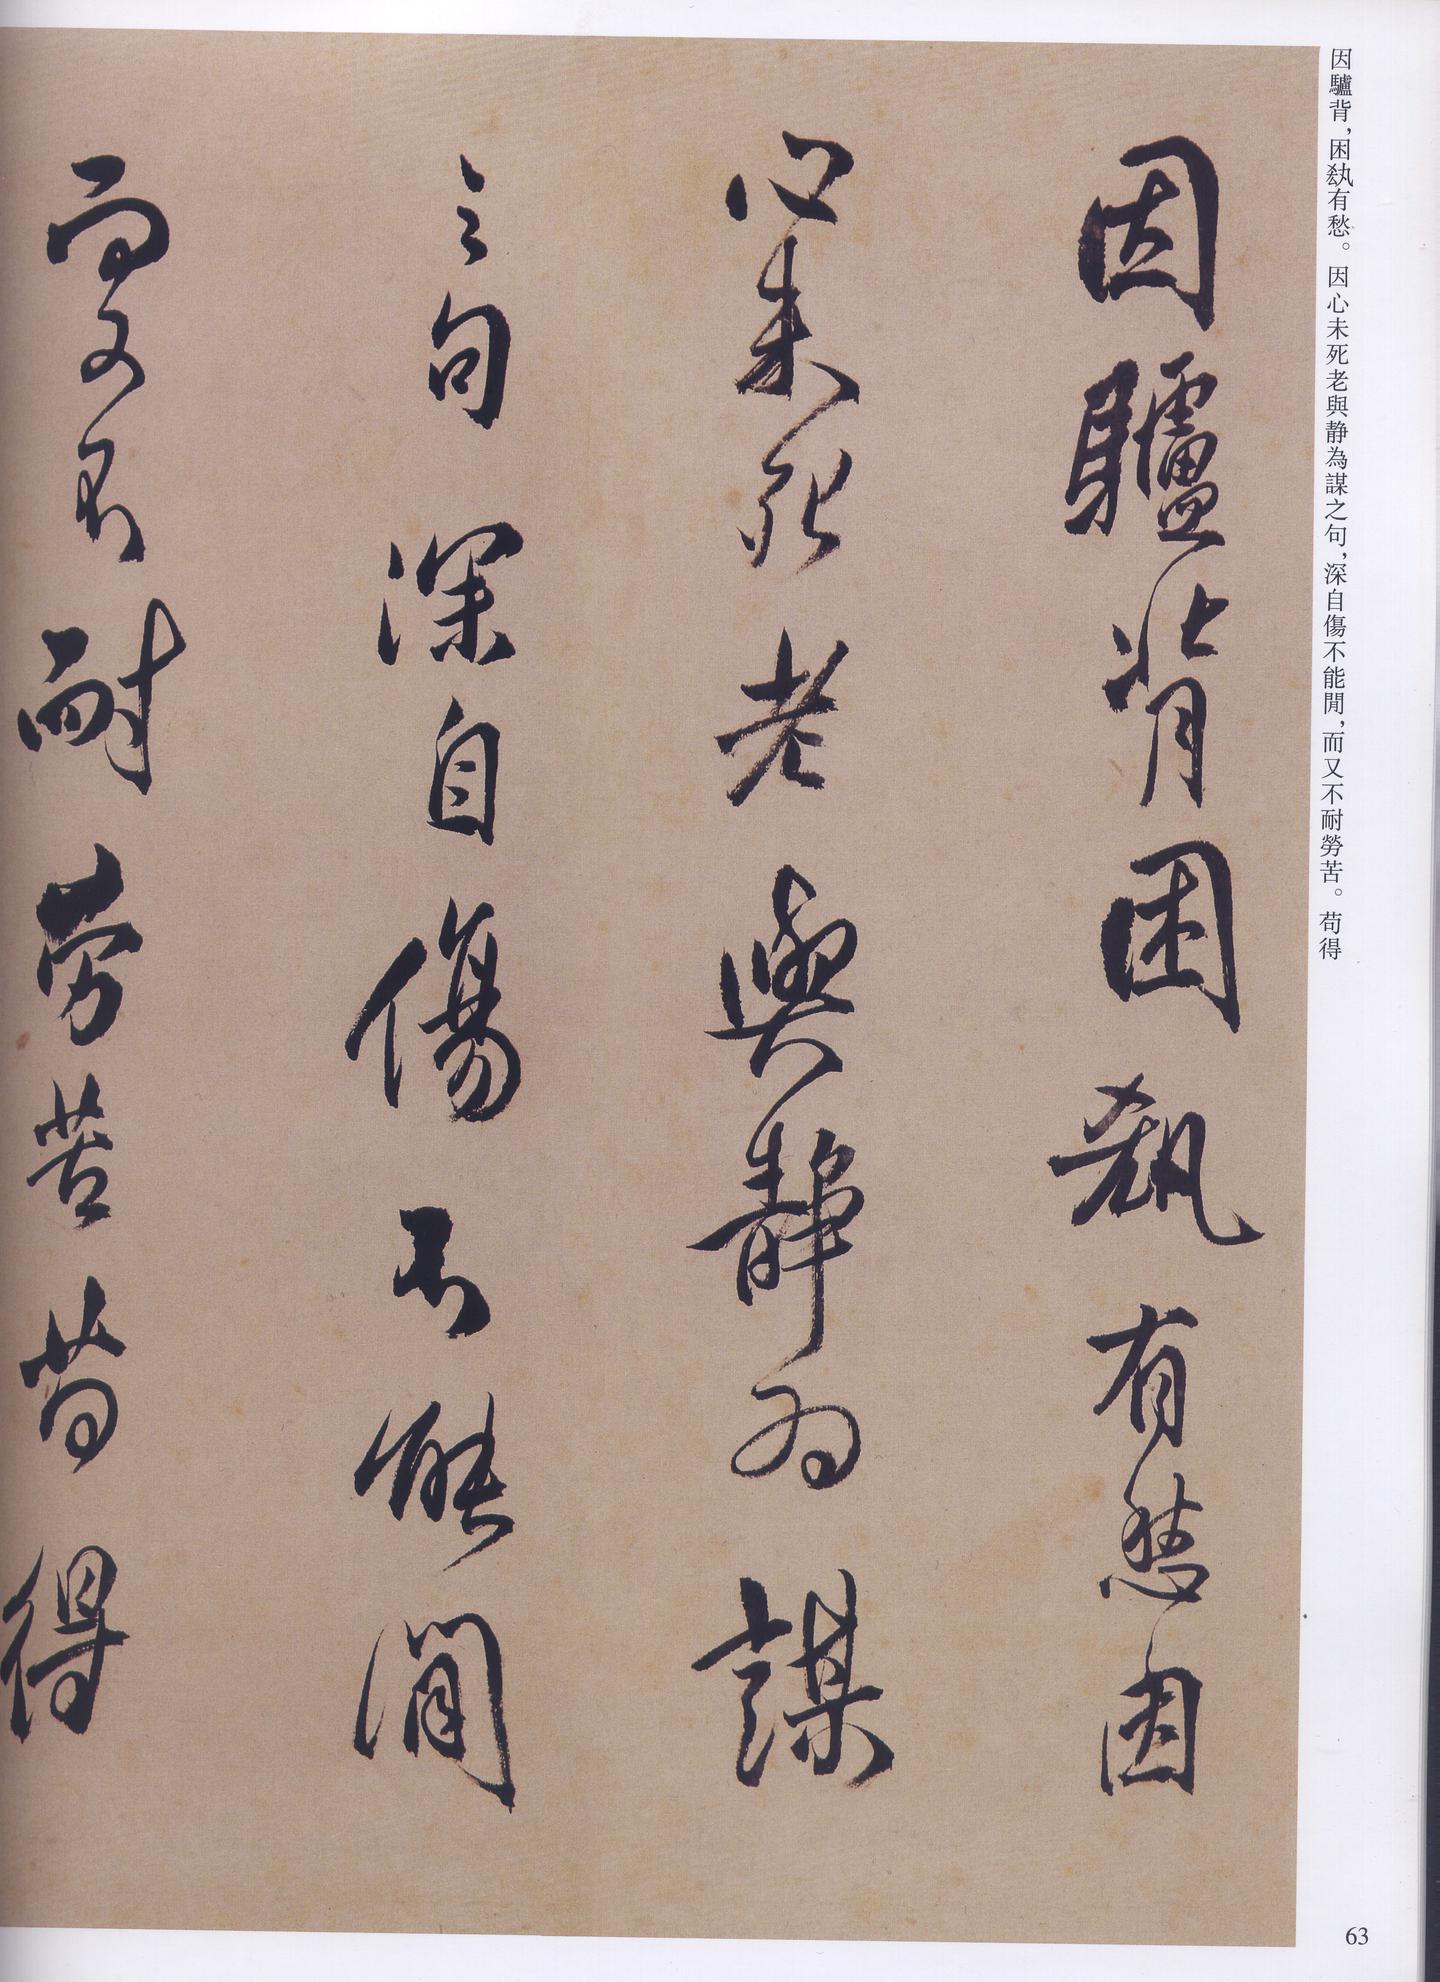 因驢背，困㲄有愁。因心未死老與静為謀之句，深自傷不能閒，而又不耐勞苦。苟得
因驢背困有愁因
心未死老與静為謀
之句深自傷不能閒
而又不耐勞苦苟得
63